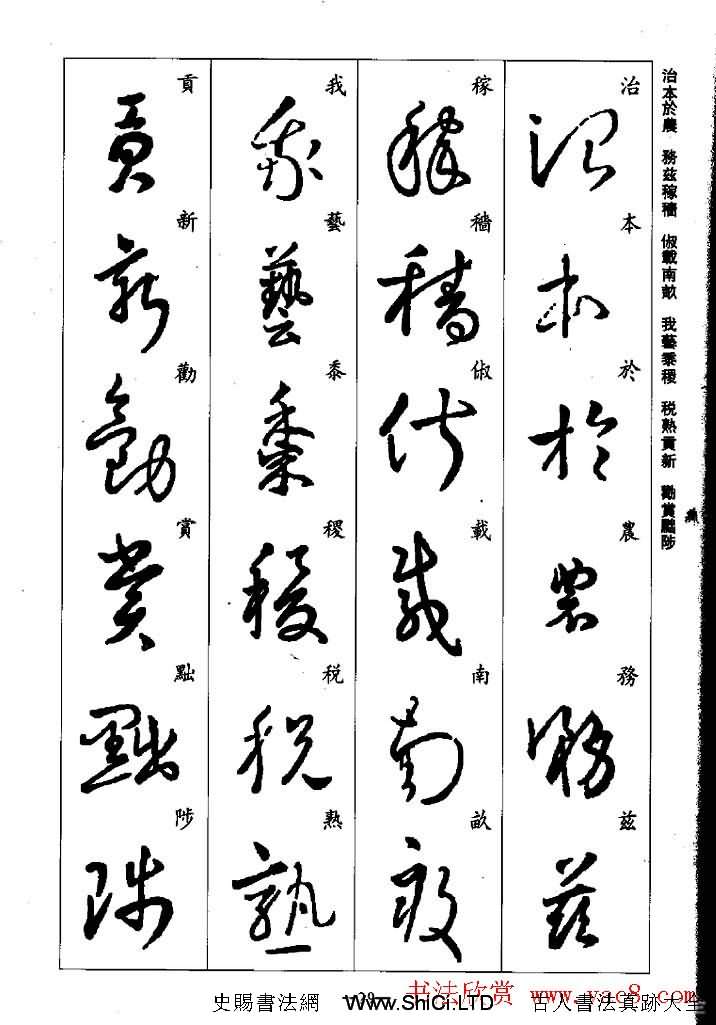 治本於農　務兹稼穡　俶載南畝　我藝黍稷　税熟貢新　勸賞黜陟
治本於農務兹
稼穡俶載南畝
我藝黍稷税熟
貢新勸賞黜陟
书法欣赏 www.yac8.com
史賜書法網 www.ShiCi.LTD 古人書法真跡大全